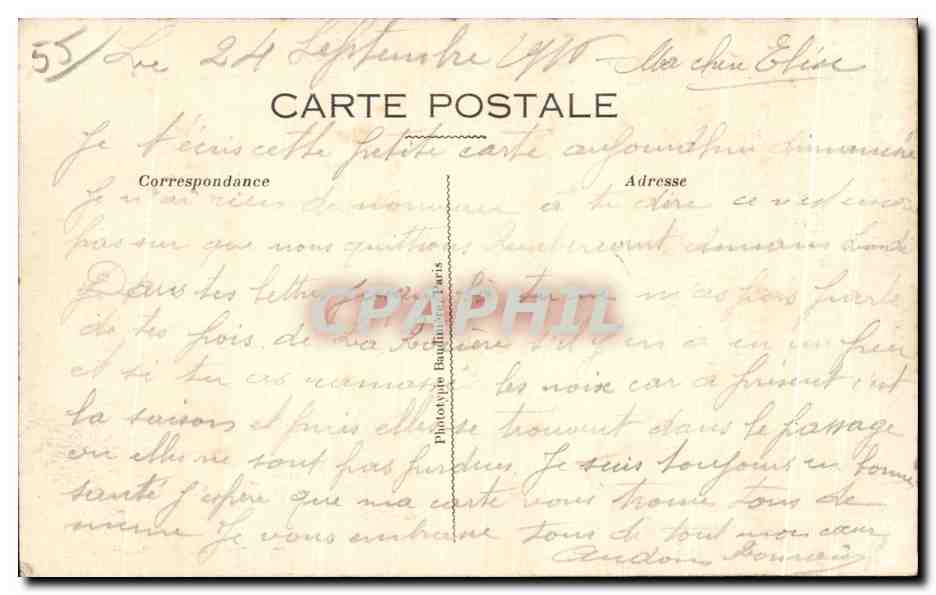 55/ Le 24 Septembre Ma chère Elise
CARTE POSTALE
Je t'écris cette petite carte aujourdhui dimanche
Correspondance Adresse
Je n'ai rien de nouveau a te dire ce n'est encore
pas sur que nous quittions demain Lundi
Dans tes lettre tu ne m'as pas parlé
de tes pois de La s'il y en a eu un peu
et si tu as ramassé les noix car a présent c'est
la saison et puis elles se trouvent dans le passage
ou elles ne sont pas perdues. Je suis toujours en bonne
santé j'espère que ma carte vous trouve tous de
même Je vous embrasse tous de tout mon cœur
Phototypie Baudinière, Paris
CPAPHIL